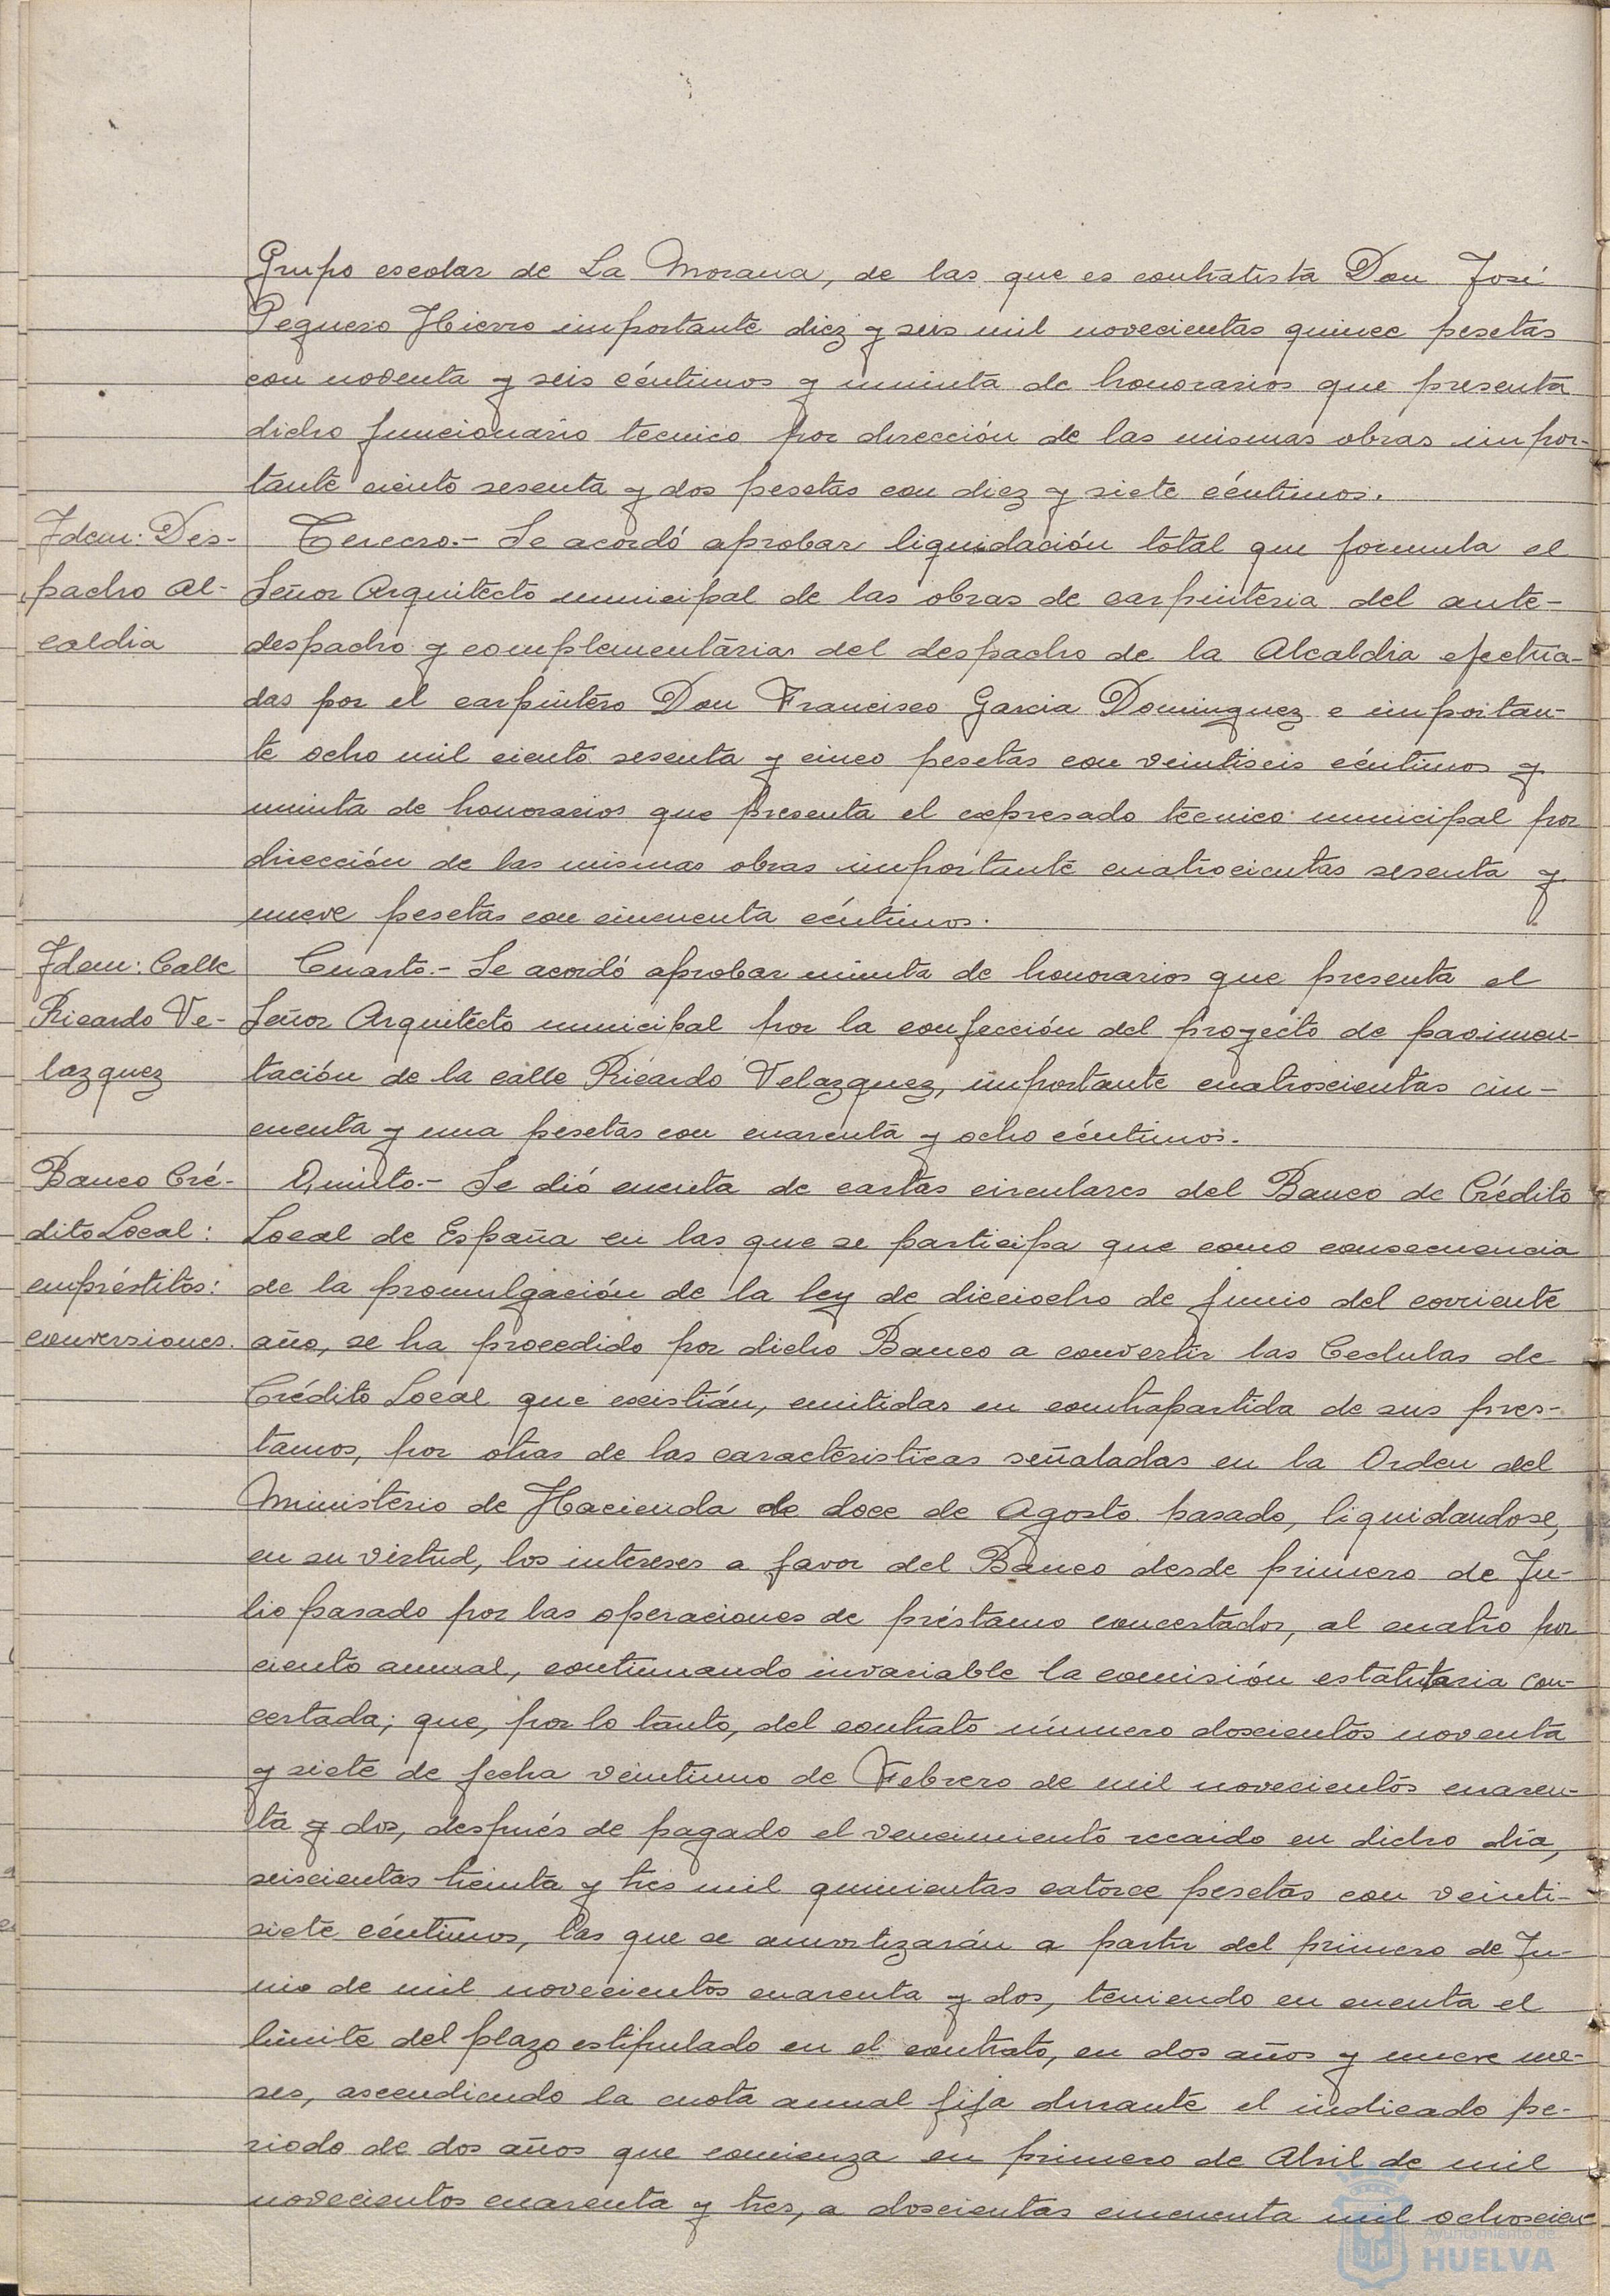 Grupo escolar de La Morana, de las que es contratista Don José
Peguero Hierro importante diez y seis mil novecientas quince pesetas
con noventa y seis céntimos y minuta de honorarios que presenta
dicho funcionario tecnico por dirección de las mismas obras impor-
tante ciento sesenta y dos pesetas con diez y siete céntimos.
Idem: Des-
pacho Al-
caldia
Tercero.- Se acordó aprobar liquidación total que formula el
Señor Arquitecto municipal de las obras de carpinteria del ante-
despacho y complementarias del despacho de la Alcaldia efectua-
das por el carpintero Don Francisco Garcia Dominguez e importan-
te ocho mil ciento sesenta y cinco pesetas con veintiseis céntimos y
minuta de honorarios que presenta el expresado tecnico municipal por
dirección de las mismas obras importante cuatrocientas sesenta y
nueve pesetas con cincuenta céntimos.
Idem: Calle
Ricardo Ve-
lazquez
Cuarto.- Se acordó aprobar minuta de honorarios que presenta el
Señor Arquitecto municipal por la confección del proyecto de pavimen-
tación de la calle Ricardo Velazquez, importante cuatroscientas cin-
cuenta y una pesetas con cuarenta y ocho céntimos.
Banco Cré-
dito Local:
empréstitos:
conversiones.
Quinto.- Se dió cuenta de cartas circulares del Banco de Crédito
Local de España en las que se participa que como consecuencia
de la promulgación de la ley de dieciocho de junio del corriente
año, se ha procedido por dicho Banco a convertir las Cedulas de
Crédito Local que existián, emitidas en contrapartida de sus pres-
tamos, por otras de las caracteristicas señaladas en la Orden del
Ministerio de Hacienda de doce de Agosto pasado, liquidandose,
en su virtud, los intereses a favor del Banco desde primero de Ju-
lio pasado por las operaciones de préstamo concertados, al cuatro por
ciento anual, continuando invariable la comisión estatutaria con-
certada; que, por lo tanto, del contrato número doscientos noventa
y siete de fecha veintiuno de Febrero de mil novecientos cuaren-
ta y dos, después de pagado el vencimiento recaido en dicho día,
seiscientas treinta y tres mil quinientas catorce pesetas con veinti-
siete céntimos, las que se amortizarán a partir del primero de Ju-
nio de mil novecientos cuarenta y dos, teniendo en cuenta el
limite del plazo estipulado en el contrato, en dos años y nueve me-
ses, ascendiendo la cuota anual fija durante el indicado pe-
riodo de dos años que comienza en primero de Abril de mil
novecientos cuarenta y tres, a doscientas cincuenta mil ochoscien-
Ayuntamiento de
HUELVA